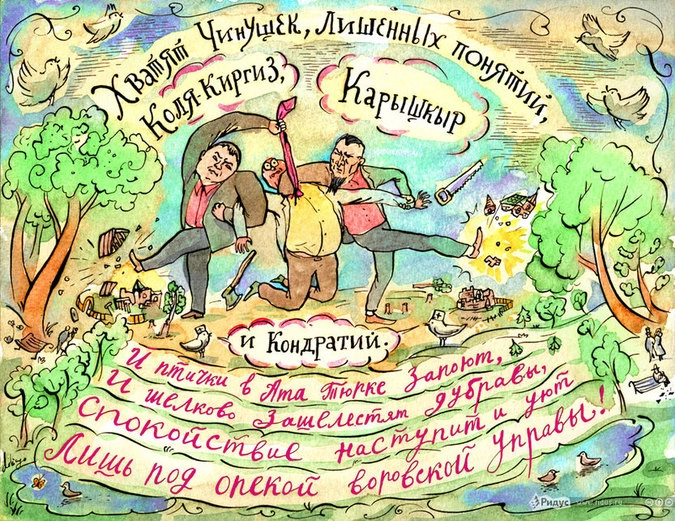 Хватят Чинушек, лишенных понятий,
Коля-Киргиз,
Карышкыр
и Кондратий.
И птички в Ата Тюрке запоют,
И шелково зашелестят дубравы,
спокойствие наступит и уют
Лишь под опекой воровской управы!
Ридус